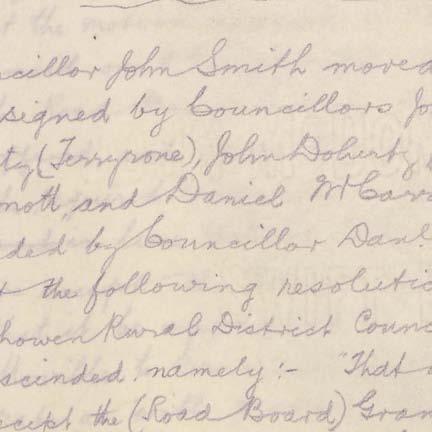 ncillor John Smith moved
signed by Councillors Jo
ty (Terryrone), John Doherty
mott, and Daniel McCarr
ded by Councillor Danl
t the following resolutio
howen Rural District Counc
scinded namely:- "That
ccept the (Road Board) Gran